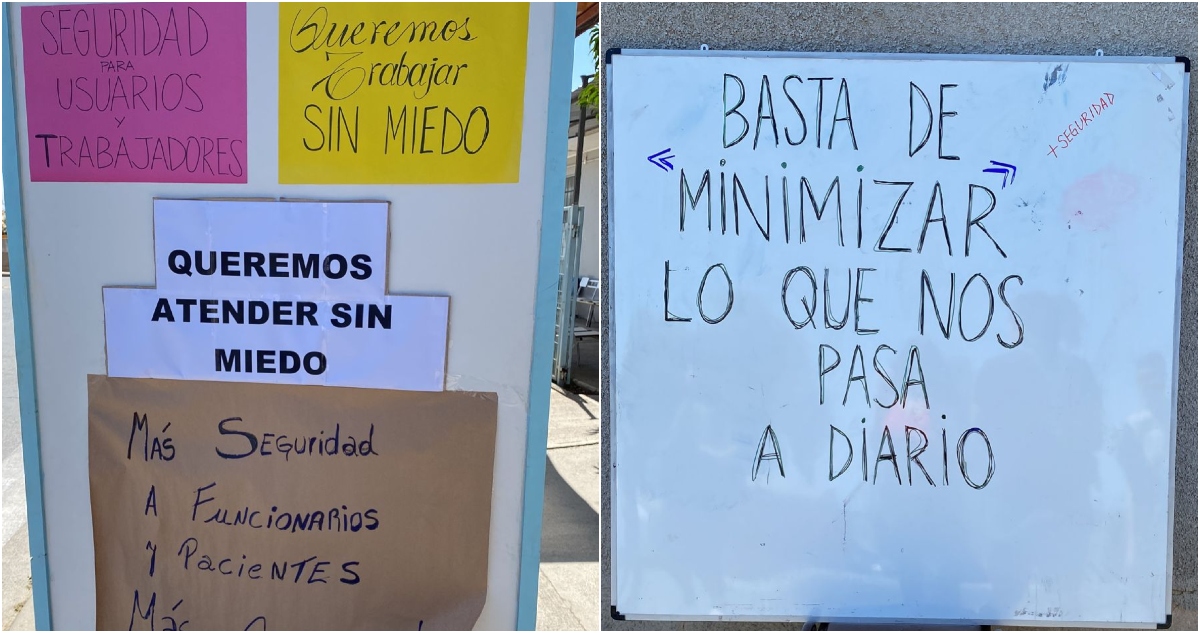 SEGURIDAD
PARA
USUARIOS
Y
TRABAJADORES
Queremos
Trabajar
SIN MIEDO
QUEREMOS
ATENDER SIN
MIEDO
Más Seguridad
A FUNCIONARIOS
y PacieNTES
Más
BASTA DE
"MINIMIZAR"
LO QUE NOS
PASA
A DIARIO
+SEGURIDAD